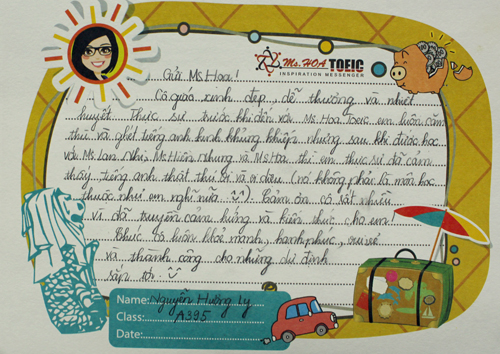 Ms. HOA TOEIC
INSPIRATION MESSENGER
Gửi Ms. Hoa!
Cô giáo xinh đẹp, dễ thương và nhiệt
huyết. Thực sự trước khi đến với Ms Hoa Toeic em luôn căm
thù và ghét tiếng anh kinh khủng khiếp nhưng sau khi được học
với Ms. Lan Nhi, Ms. Hiền Nhung và Ms Hoa thì em thực sự đã cảm
thấy tiếng anh thật thú vị và dễ (nó không phải là môn học
thuộc như em nghĩ nữa. Cảm ơn cô rất nhiều
vì đã truyền cảm hứng và kiến thức cho em!
Chúc cô luôn khoẻ mạnh, hạnh phúc, vui vẻ
và thành công cho những dự định
sắp tới.
Name: Nguyễn Hương Ly
Class: A395
Date: